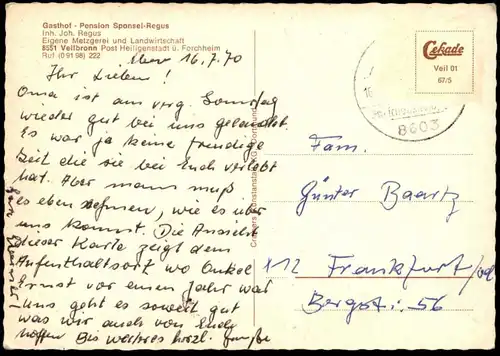 Gasthof - Pension Sponsel-Regus
Inh. Joh. Regus
Eigene Metzgerei und Landwirtschaft
8551 Veilbronn Post Heiligenstadt ü. Forchheim
Ruf (0 91 98) 222
16.7.70
Ihr Lieben!
Oma ist am verg. Samstag
wieder gut bei uns gelandet.
Es war ja keine freudige
Zeit die sie bei Euch verlebt
hat. Aber mann muß
es eben nehmen, wie es über
uns kommt. Die Ansicht
dieser Karte zeigt dem
Aufenthaltsort wo Onkel
Ernst vor einem Jahr war
Uns geht es soweit gut
was wir auch von Euch
hoffen Bis weiteres herzl. Grüße
Cekade
Veil 01
67/5
8603
Fam.
Günter Baartz
X 12 Frankfurt/Od
Bergstr. 56